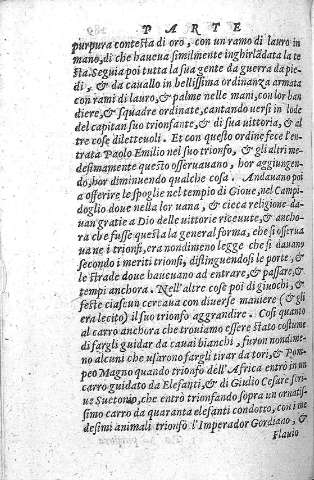 PARTE
purpura contesta di oro, con un ramo di lauro in
mano, di che haueua similmente inghirlãdata la te
sta. Seguia poi tutta la sua gente da guerra da pie
di, & da cauallo in bellissima ordinanza armata
con rami di lauro, & palme nelle mani, con lor ban
diere, & squadre ordinate, cantando uersi in lode
del capitan suo trionfante, & di sua uittoria, & al
tre cose diletteuoli. Et con questo ordine fece l'en-
trata Paolo Emilio nel suo trionfo, & gli altri me-
desimamente questo osseruauano, hor aggiungen-
do, hor diminuendo qualche cosa. Andauano poi
a offerire le spoglie nel tempio di Gioue, nel Campi
doglio doue nella lor uana, & cieca religione da-
uan gratie a Dio delle uittorie riceuute, & ancho-
ra che fusse questa la general forma, che si osserua
uane i trionfi, era nondimeno legge che si dauano
secondo i meriti trionfi, distinguendosi le porte, &
le strade doue haueuano ad entrare, & passare, &
tempi anchora. Nell'altre cose poi di giuochi, &
feste ciascun cercaua con diuerse maniere (& gli
era lecito) il suo trionfo aggrandire. Cosi quanto
al carro anchora che trouiamo essere stato costume
di fargli guidar da cauai bianchi, furon nondime-
no alcuni che usarono fargli tirar da tori, & Pom-
peo Magno quando trionfò dell'Africa entrò in un
carro guidato da Elefanti, & di Giulio Cesare scri-
ue Suetonio, che entrò trionfando sopra un ornatis-
simo carro da quaranta elefanti condotto, con i me
desimi animali trionfò l'Imperador Gordiano, &
Flauio